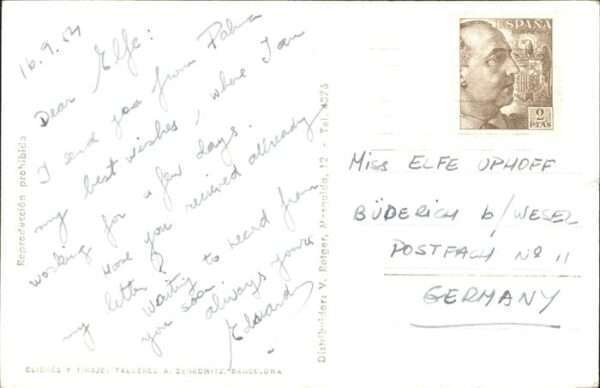 16.9.54
Dear Elfe:
I send you from Palma
my best wishes, where I am
working for a few days.
Have you recieved allready
my letter? Waiting to heard from
you soon. always yours
Edward
Reproducción prohibida
CLICHÉS Y TIRAJE: TALLERES A. ZERKOWITZ, BARCELONA
Distribuidor: V. Rotger, 12 - Tel.
ESPAÑA
2
PTAS
MISS ELFE UPHOFF
BÜDERICH b/WESEL
POSTFACH Nº 11
GERMANY